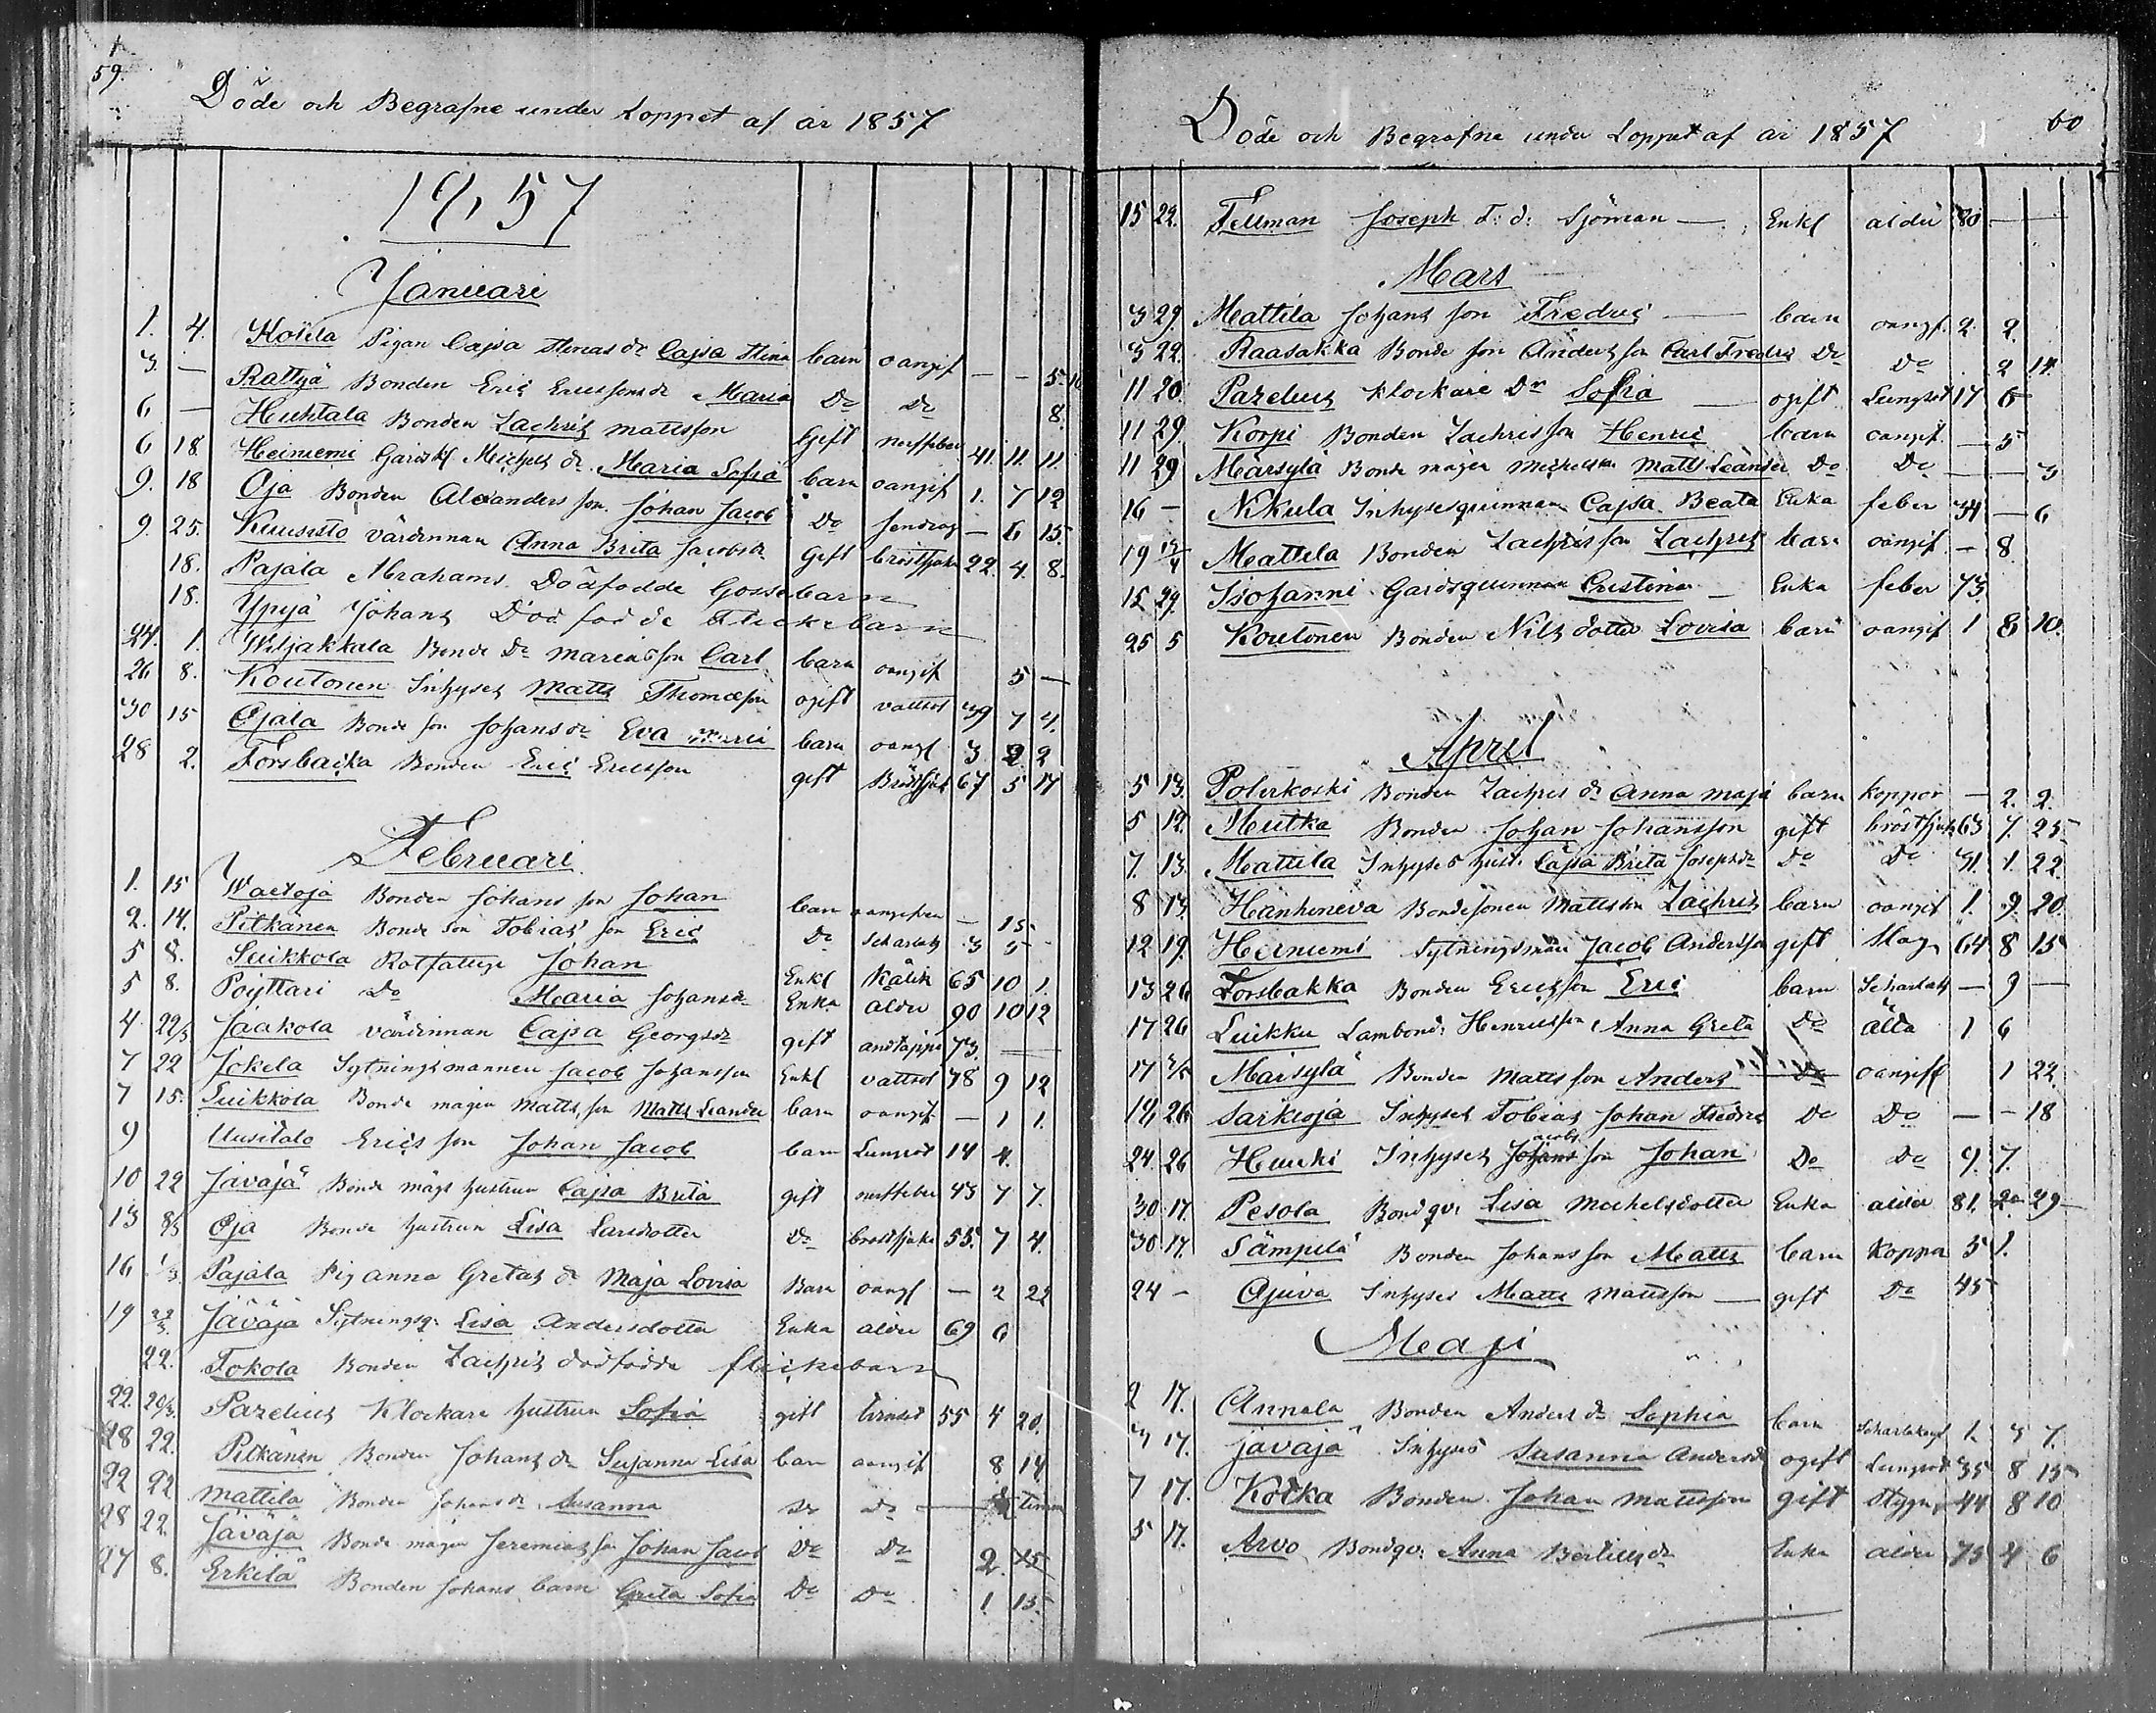 59.
Döde och Begrafne under Loppet af år 1857
1857
Januari
1. 4. Koila Pigan Cajsa Stinas dr Cajsa Stina barn oangif — — 5 16
3. — Rattyä Bonden Eric Ericssons dr Maria Do Do 8.
6 — Huhtala Bonden Zachris Mattsson Gift nerffeber 41. 11. 11.
6 18 Heiniemi Michels dr Maria Sofia barn oangif 1. 7 12
9. 18 Oja Bonden Alexanders son Johan Jacob Do — 6 15.
9. 25. Kuusisto värdinnan Anna Brita Jacobsdr gift bröstsjuka 22. 4. 8.
18. Pajala Abrahams Dödfödde Gossebarn
18. Ypyä Johans Död födde Flickebarn
24. 1. Wiljakkala Bonde Dr Marias son Carl barn oangif 5 —
26 8. Koutonen Inhyses Matts Thomasson ogift vattsot 39 7 4.
30 15 Ojala Bonde son Johans dr Eva barn oangf 3 2 2
28 2. Forsbacka Bonden Eric Ericsson gift Bröstsjuk 67 5 17
Februari
1. 15 Waetoja Bonden Johans son Johan barn oangifven — 15
2. 14. Pitkänen Bonde son Tobias son Eric Do Scharlak 3 5
5 8. Suikkola Rotfattige Johan Enkl Kålik 65 10 1.
5 8. Pöyttäri Do Maria Johansdr Enka ålder 90 10 12
4 22/3 Jaakola värdinnan Cajsa Georgsdr gift andtäppa 73. —
7 22 Jokela Sytningsmannen Jacob Johansson Enkl vattsot 78 9 12
7 15. Suikkola Bonde mågen Matts son Matts Leander barn oangif — 1 1.
9 Uusitalo Erics son Johan Jacob barn Lungsot 14 4.
10 22 Jäväjä Bonde mågs hustrun Cajsa Brita gift nerffeber 43 7 7.
13 8/3 Oja Bonde hustrun Lisa Larsdotter Do bröstsjuka 55. 7 4.
16 1/3 Pajala Pig Anna Gretas dr Maja Lovisa Barn oangf — 2 22
19 22/3 Jäväjä Sytningsq. Lisa Andersdotter Enka ålder 69 6
22. Tokola Bonden Zachris dödfödda flickebarn
22. 29/3. Pazelius Klockare hustrun Sofia gift 55 4 20.
28 22. Pitkänen Bonden Johans dr Susanna Lisa barn oangif 8 14
22 22 Mattila Bonden Johans dr Susanna Do Do —
28 22. Jäväjä Bonde mågen Jeremias son Johan Jacob Do Do 2. 25
27 8. Erkilä Bonden Johans barn Greta Sofia Do Do 1. 15.
60
Döde och Begrafne under Loppet af år 1857
15 22. Fellman Joseph f: d: Sjöman — Enkl ålder 80 —
Mars
3 29. Mattila Johans son Fredric — barn oangf. 2. 2.
3 22. Raasakka Bonde son Anders son Carl Fredric Do Do 2 14.
11 20. Pazelius Klockare Dr Sofia — ogift Lungsot 17 6
11 29. Korpi Bonden Zachris son Henric barn oangif. — 5
11 29 Märsylä Bonde mågen Michels son Matts Leander Do Do — — 3
16 — Nikula Inhysesquinnan Cajsa Beata Enka feber 34 — 6
19 13/4 Mattila Bonden Zachris son Zachris barn oangif — 8
12 29. Isohanni Gårdsquinnan Cristina — Enka feber 73.
25 5 Koutonen Bonden Nils dotter Lovisa barn oangif 1 8 20.
April
5 13. Polvikoski Bonden Zachris dr Anna Maja barn koppor — 2. 2.
5 12. Mutka Bonden Johan Johansson gift bröstsjuk 63 7. 25
7. 13. Mattila Inhyses hust. Cajsa Brita Josephsdr Do Do 31. 1. 22.
8 13. Hanhineva Bondesonen Matts son Zachris barn oangif 1. 9. 20.
12 19. Heiniemi Sytningsman Jacob Andersson gift Slag 64 8 15
13 26 Forsbakka Bonden Erics son Eric barn Scharlak — 9 —
17 26 Luikku Lambonde Henricsson Anna Greta Do älta 1 6
17 3/5 Märsylä Bonden Matts son Anders Do oangiff 1 22.
14 26 Särkioja Inhyses Tobias Johan Fredric Do Do — — 18
24. 26 Huuki Inhyses Johans Jacobs son Johan Do Do 9. 7.
30. 17. Pesola Bondqv. Lisa Michelsdotter Enka ålder 81. 2 29
30 17. Sämpilä Bonden Johans son Matts barn Koppor 5 1.
24 — Ojuva Inhyses Matts Mattsson — gift Do 45
Maji
2 17. Annala Bonden Anders dr Sophia barn 1. 5 7.
3 17. Jäväjä Inhyses Susanna Andersdr ogift Lungsot 35 8 15
7 17. Kotka Bonden Johan Mattsson gift Stygn 44 8 10
5 17. Arvo Bondqv. Anna Bertilsdr Enka ålder 75 4 6